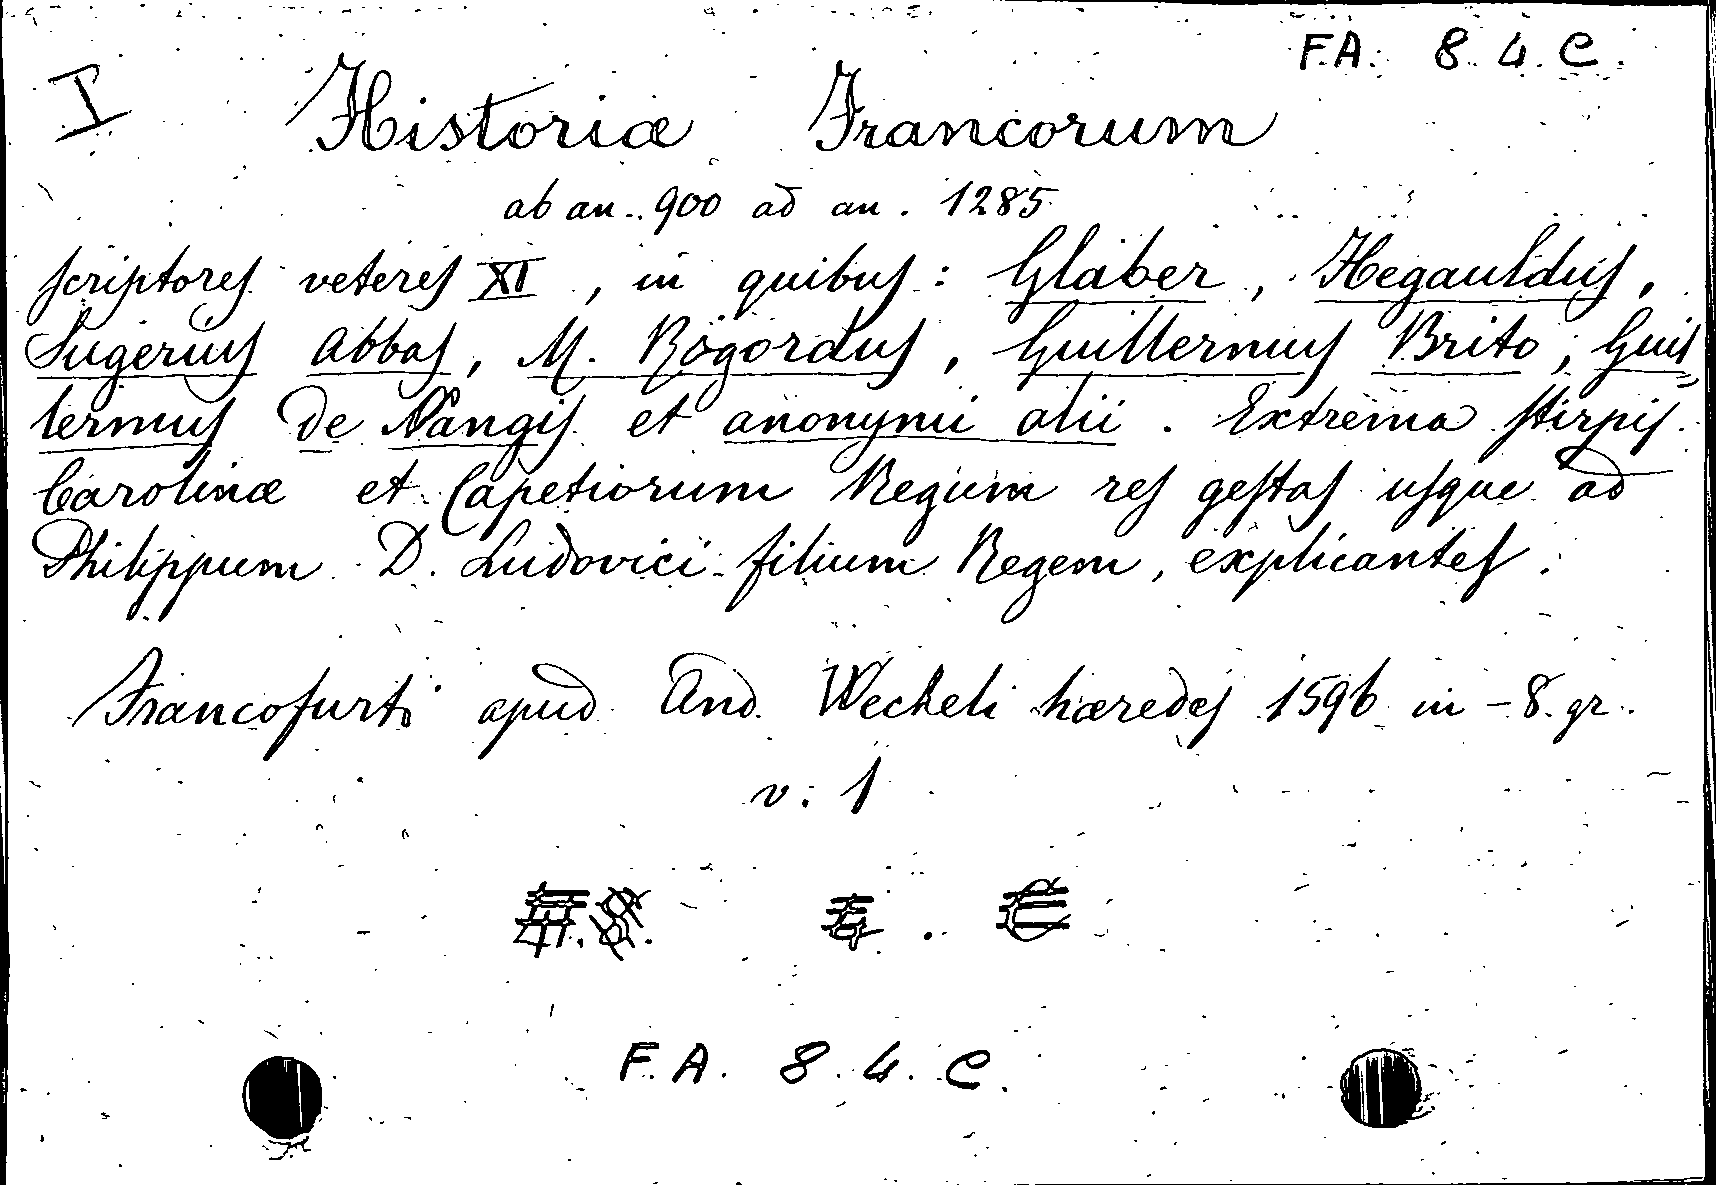 F.A. 8. 4. C.
I
Historiæ Francorum
ab an. 900 ad an. 1285
scriptores veteres XI, in quibus: Glaber, Hegauldus,
Sugerius abbas, M. Rogordus, Guillermus Brito, Guil=
lermus de Nangis et anonymi alii. Extrema stirpis
Carolinæ et Capetiorum Regum res gestas usque ad
Philippum D. Ludovici filium Regem, explicantes.
Francofurti apud And. Wecheli hæredes 1596 in-8. gr.
v. 1
F.A. 8. 4. C.